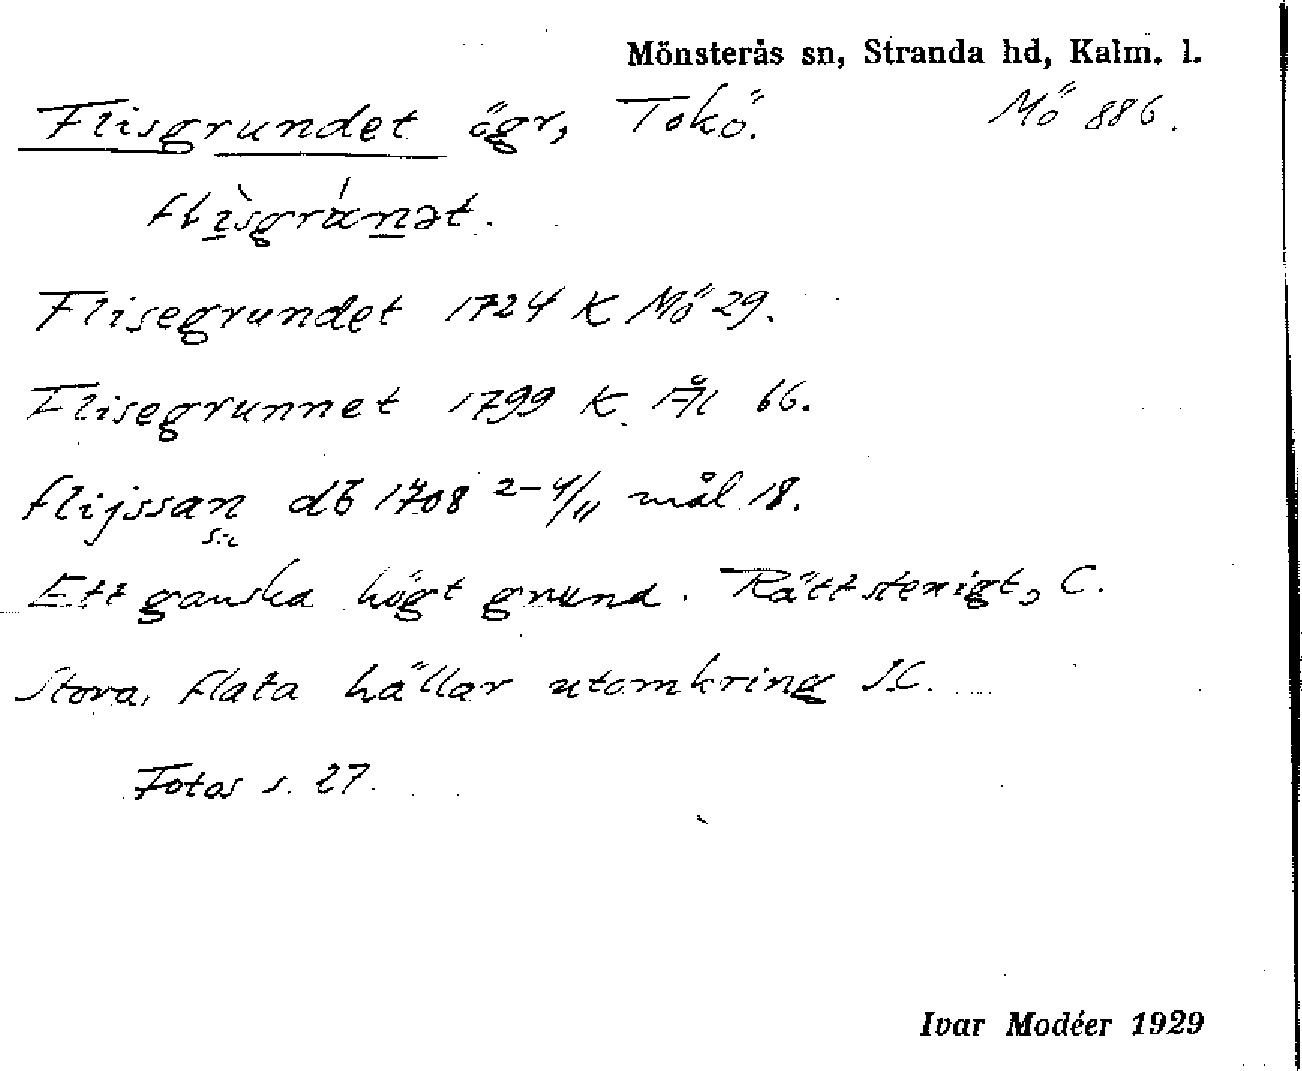 Mönsterås sn, Stranda hd, Kalm. l.
Flisgrundet ögr, Tokö. Mö 886.
flìsgránət.
Flisegrundet 1724 K Mö 29.
Flisegrunnet 1799 K Ål 66.
flijssan db 1708 2–4/11 mål 18.
sic
Ett ganska högt grund. Rätt stenigt, C.
Stora, flata hällar utomkring IC.
Fotos s. 27.
Ivar Modéer 1929